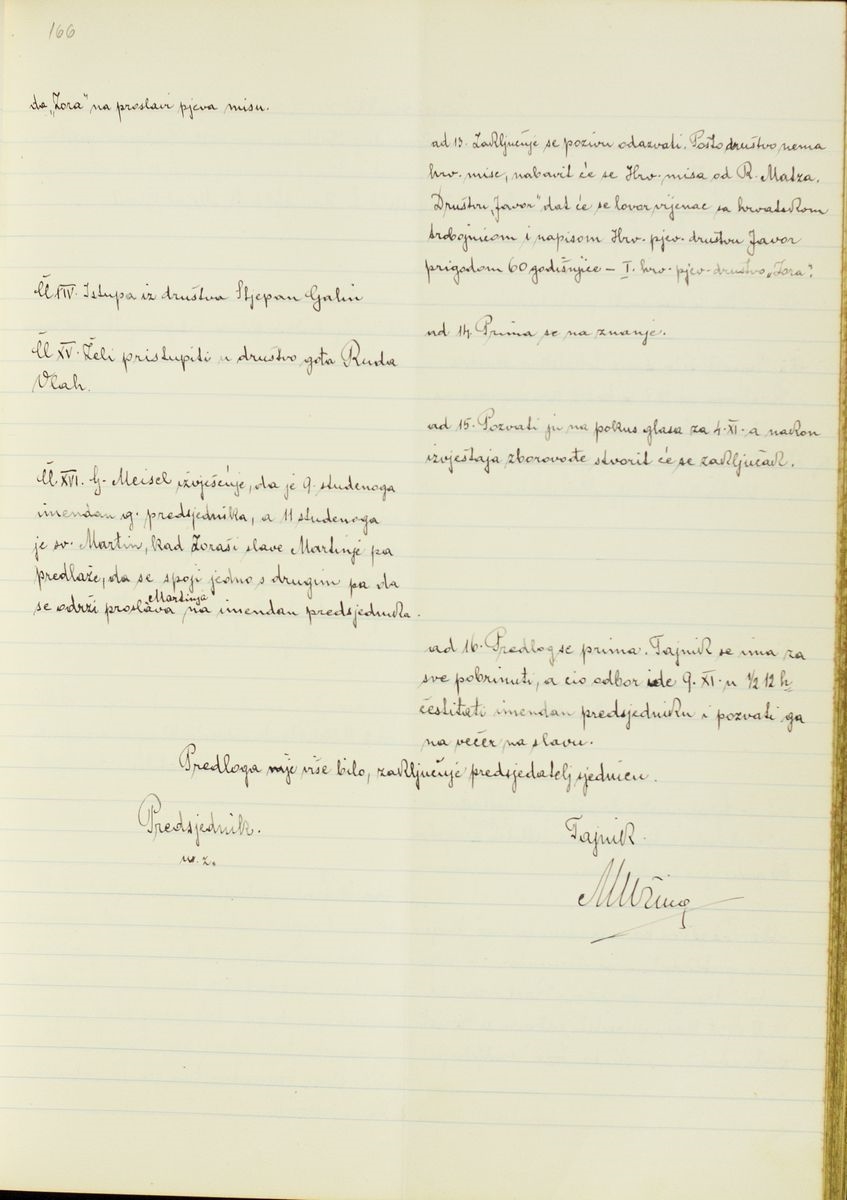 166
da „Zora" na proslavi pjeva misu.
ad 13. Zaključuje se pozivu odazvati. Pošto društvo nema
hrv. mise, nabavit će se Hrv. misa od R. Matza.
Društvu „Javor" dat će se lovor vijenac sa hrvatskom
trobojnicom i napisom Hrv. pjev. društvu Javor
prigodom 60 godišnjice – I. hrv. pjev. društvo „Zora".
Čl XIV. Istupa iz društva Stjepan Galin
ad 14. Prima se na znanje.
Čl XV. Želi pristupiti u društvo gđa Ruda
Vlah.
ad 15. Pozvati ju na pokus glasa za 4. XI. a nakon
izvještaja zborovođe stvorit će se zaključak.
Čl XVI. G. Meisel izvješćuje, da je 9. studenoga
imendan g. predsjednika, a 11 studenoga
je sv. Martin, kad Zoraši slave Martinje pa
predlaže, da se spoji jedno s drugim pa da
se održi proslava Martinja na imendan predsjednika.
ad 16. Predlog se prima. Tajnik se ima za
sve pobrinuti, a cio odbor ide 9. XI. u ½ 12 h
čestitati imendan predsjedniku i pozvati ga
na večer na slavu.
Predloga nije više bilo, zaključuje predsjedatelj sjednicu.
Predsjednik.
Tajnik.